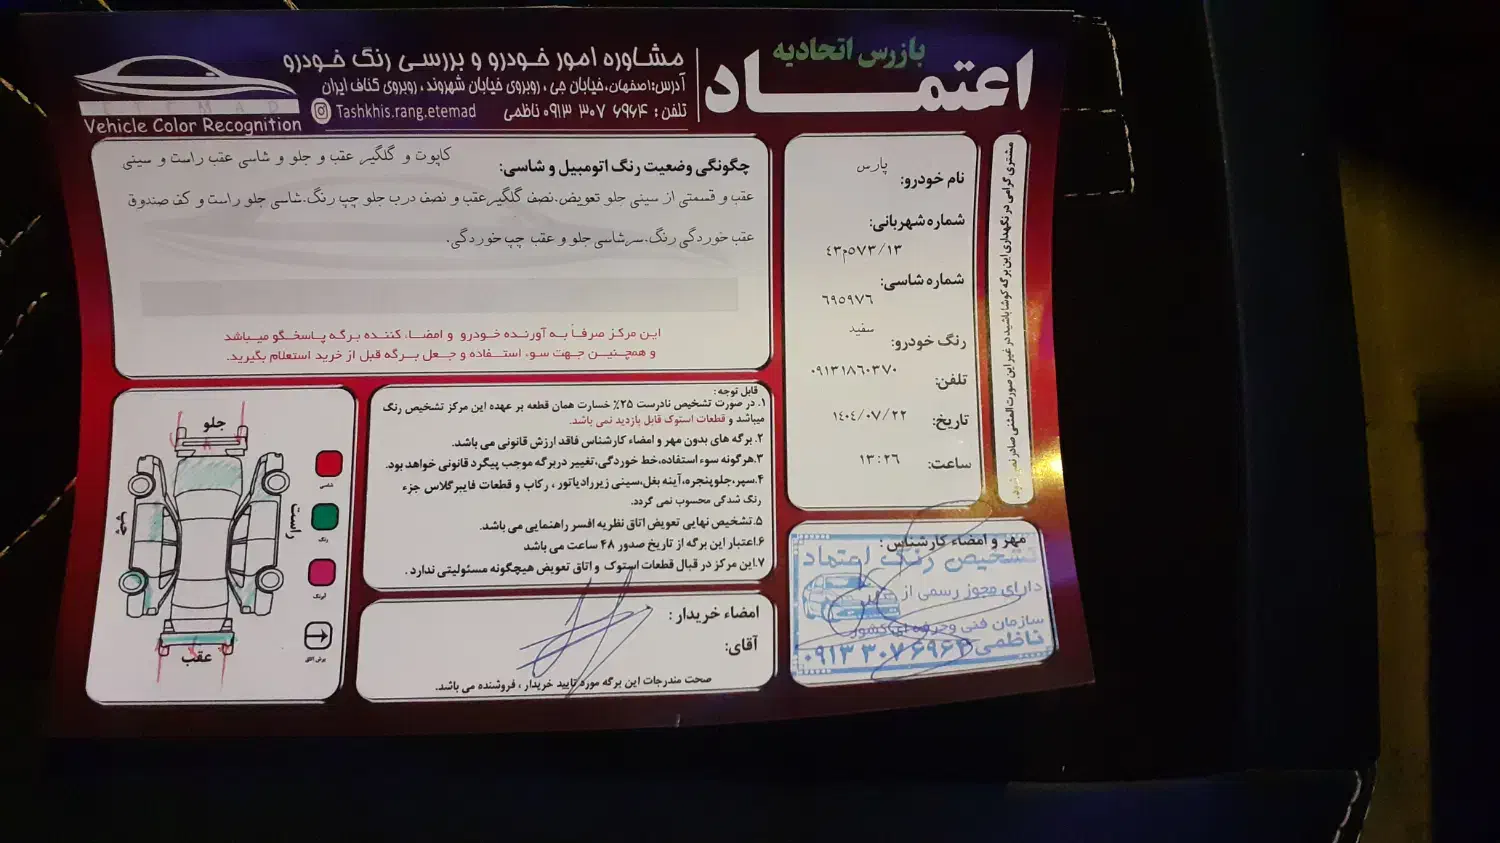 بازرس اتحادیه
اعتمـــاد
مشاوره امور خودرو و بررسی رنگ خودرو
آدرس:اصفهان،خیابان جی ، روبروی خیابان شهروند ، روبروی کناف ایران
تلفن : ۰۹۱۳ ۳۰۷ ۶۹۶۴ ناظمی Tashkhis.rang.etemad
ETEMAD
Vehicle Color Recognition
نام خودرو: پارس
شماره شهربانی:
۴۳م۵۷۳/۱۳
شماره شاسی:
۶۹۵۹۷۶
رنگ خودرو: سفید
تلفن: ۰۹۱۳۱۸۶۰۳۷۰
تاریخ: ۱۴۰۴/۰۷/۲۲
ساعت: ۱۳:۲۶
مشتری گرامی در نگهداری این برگه کوشا باشید در غیر این صورت المثنی صادر
چگونگی وضعیت رنگ اتومبیل و شاسی: کاپوت و گلگیر عقب و جلو و شاسی عقب راست و سینی
عقب و قسمتی از سینی جلو تعویض.نصف گلگیرعقب و نصف درب جلو چپ رنگ.شاسی جلو راست و کف صندوق
عقب خوردگی رنگ.سرشاسی جلو و عقب چپ خوردگی.
این مرکز صرفاً به آورنده خودرو و امضاء کننده برگه پاسخگو میباشد
و همچنین جهت سوء استفاده و جعل برگه قبل از خرید استعلام بگیرید.
قابل توجه :
۱. در صورت تشخیص نادرست ۲۵٪ خسارت همان قطعه بر عهده این مرکز تشخیص رنگ
میباشد و قطعات استوک قابل بازدید نمی باشد.
۲. برگه های بدون مهر و امضاء کارشناس فاقد ارزش قانونی می باشد.
۳.هرگونه سوء استفاده،خط خوردگی،تغییر دربرگه موجب پیگرد قانونی خواهد بود.
۴.سپر،جلوپنجره،آینه بغل،سینی زیررادیاتور ، رکاب و قطعات فایبرگلاس جزء
رنگ شدگی محسوب نمی گردد.
۵.تشخیص نهایی تعویض اتاق نظریه افسر راهنمایی می باشد.
۶.اعتبار این برگه از تاریخ صدور ۴۸ ساعت می باشد
۷.این مرکز در قبال قطعات استوک و اتاق تعویض هیچگونه مسئولیتی ندارد .
جلو
راست
چپ
عقب
شاسی
رنگ
لیدنگ
برش اتاق
امضاء خریدار :
آقای:
صحت مندرجات این برگه مورد تایید خریدار ، فروشنده می باشد.
مهر و امضاء کارشناس :
تشخیص رنگ اعتماد
دارای مجوز رسمی از
سازمان فنی وحرفه ای کشور
ناظمی ۰۹۱۳ ۳۰۷ ۶۹۶۴